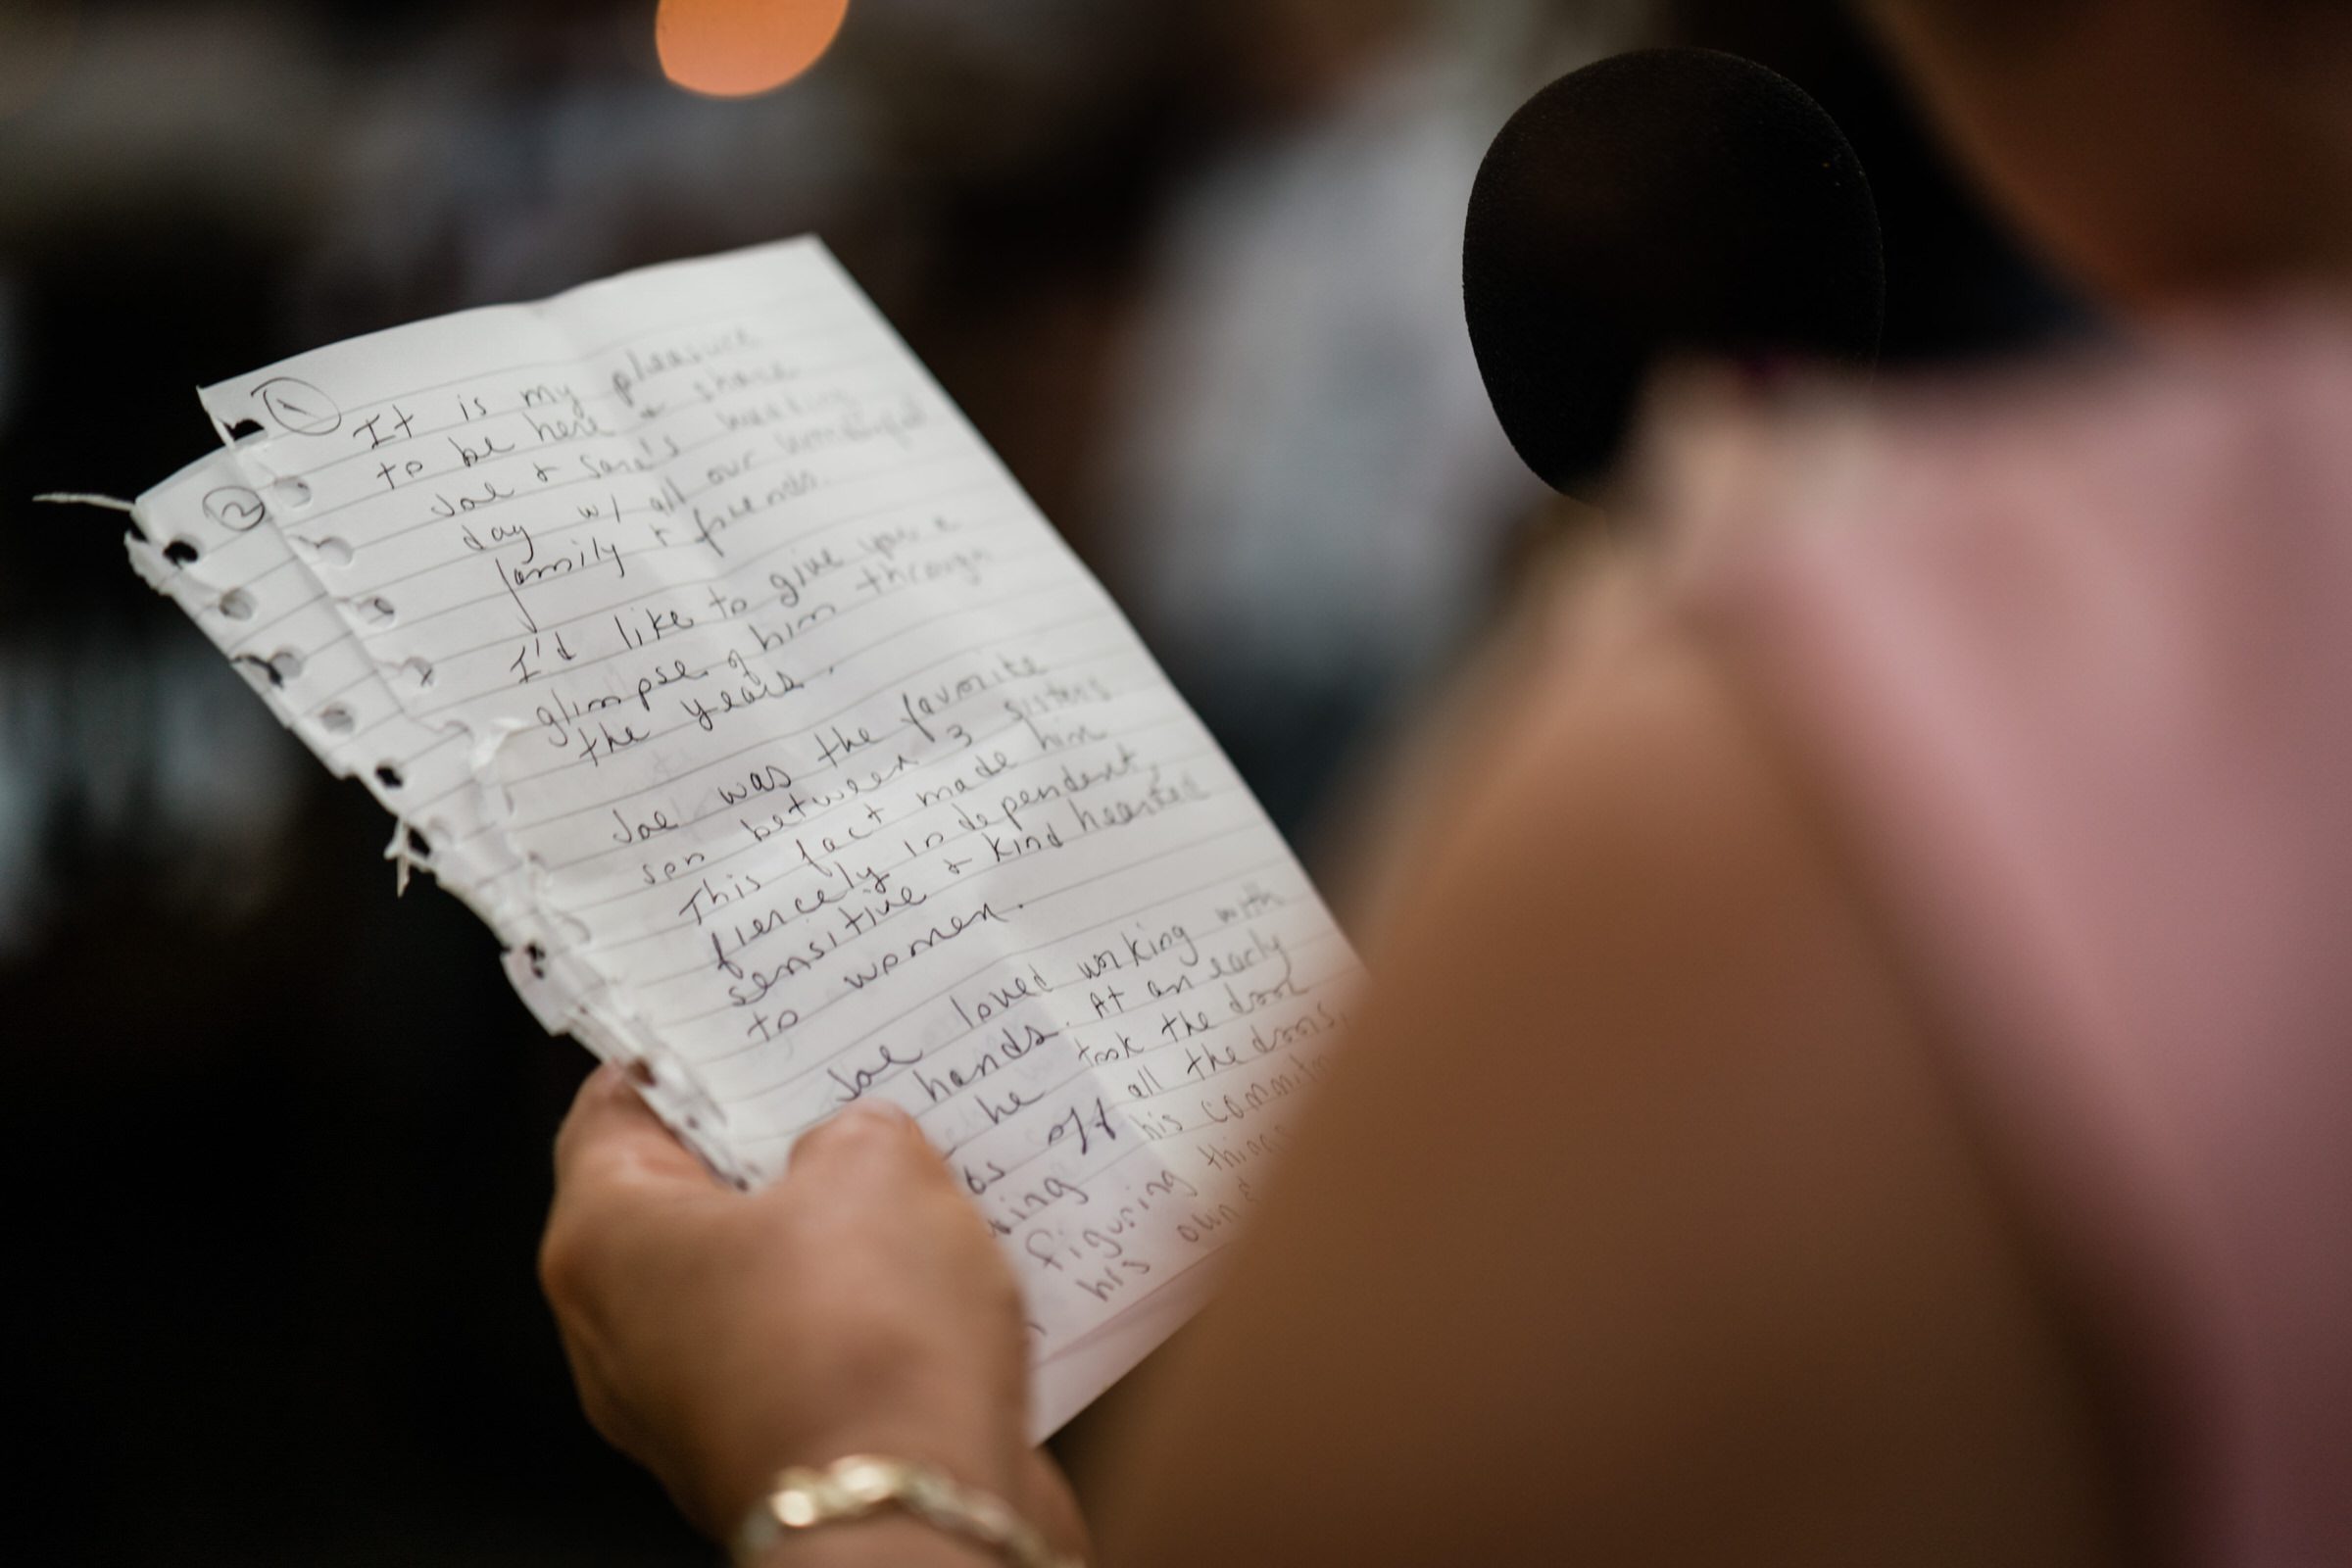 ①
It is my pleasure
to be here + share
Joe + Sara's wedding
day w/ all our wonderful
family + friends.
I'd like to give you a
glimpse of him through
the years.
Joe was the favorite
son between 3 sisters
This fact made him
fiercely independent,
sensitive + kind hearted
to women.
Joe loved working with
hands. At an early
he took the door
off all the doors,
his
figuring things
his own
②